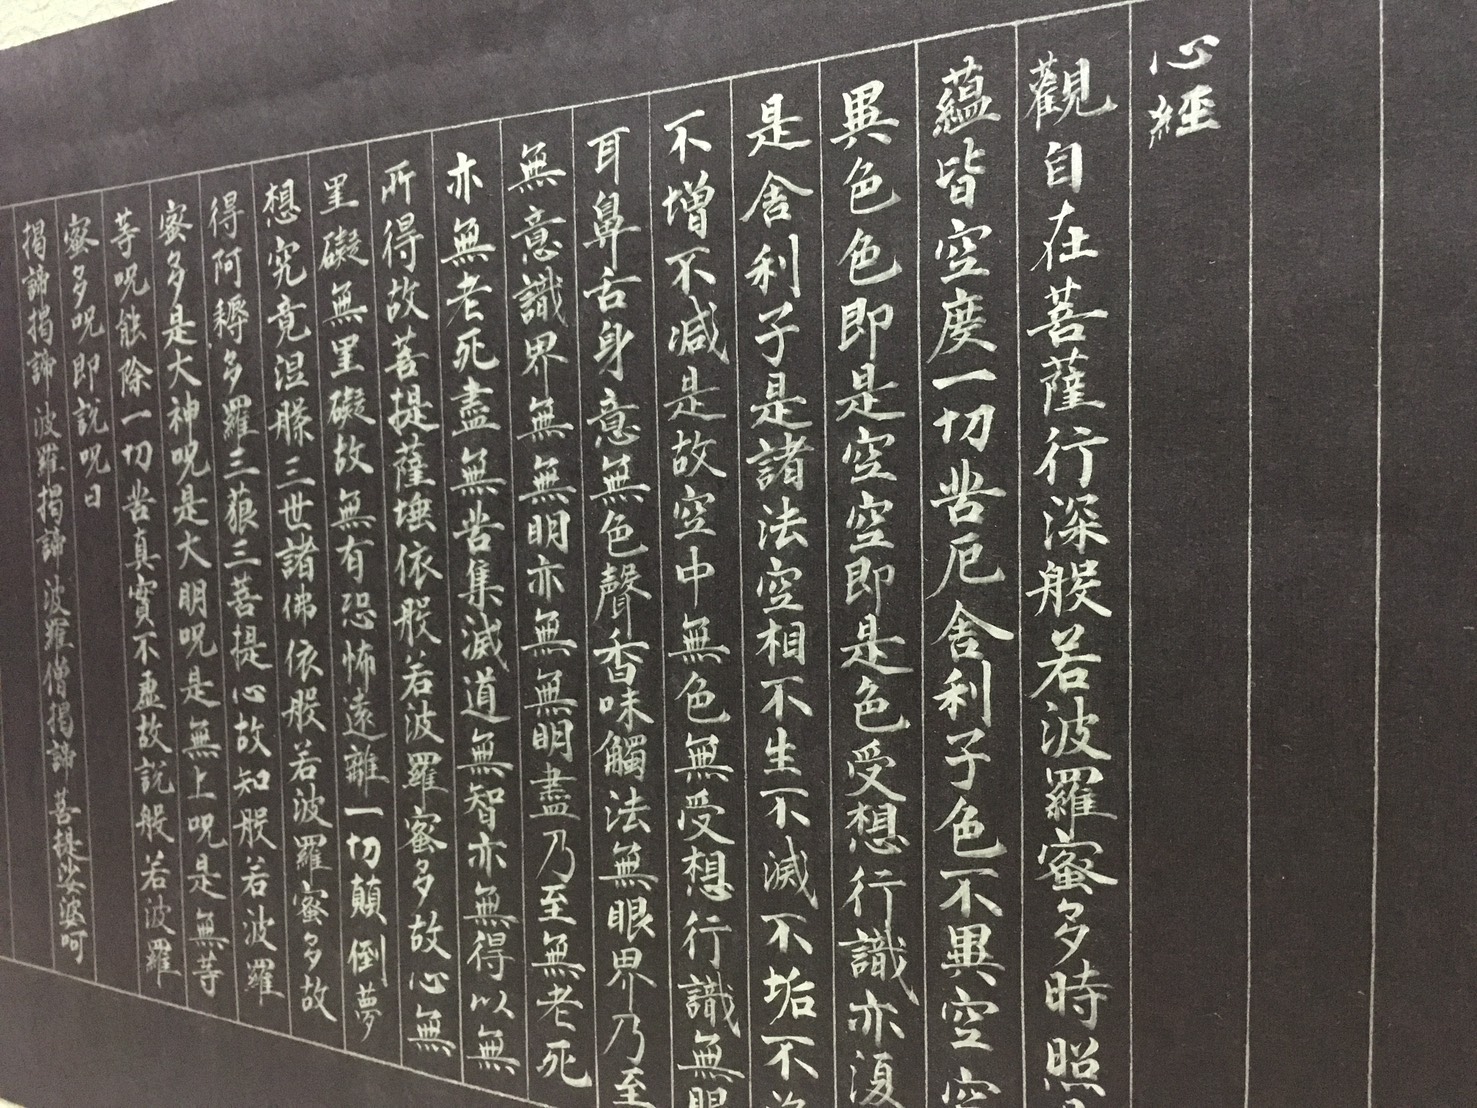 心經
觀自在菩薩行深般若波羅蜜多時照
蘊皆空度一切苦厄舍利子色不異空空
異色色即是空空即是色受想行識亦復
是舍利子是諸法空相不生不滅不垢不
不增不減是故空中無色無受想行識無眼
耳鼻舌身意無色聲香味觸法無眼界乃至
無意識界無無明亦無無明盡乃至無老死
亦無老死盡無苦集滅道無智亦無得以無
所得故菩提薩埵依般若波羅蜜多故心無
罣礙無罣礙故無有恐怖遠離一切顛倒夢
想究竟涅槃三世諸佛依般若波羅蜜多故
得阿耨多羅三藐三菩提心故知般若波羅
蜜多是大神呪是大明呪是無上呪是無等
等呪能除一切苦真實不虛故說般若波羅
蜜多呪即說呪曰
揭諦揭諦 波羅揭諦 波羅僧揭諦 菩提娑婆呵